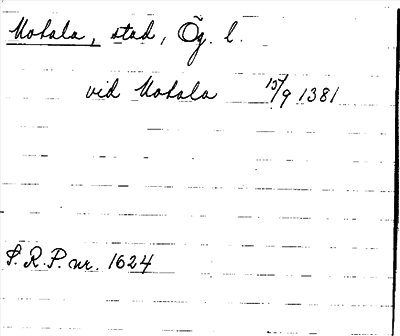 Motala, stad, Ög. l.
vid Motala 15/9 1381
S.R.P. nr. 1624